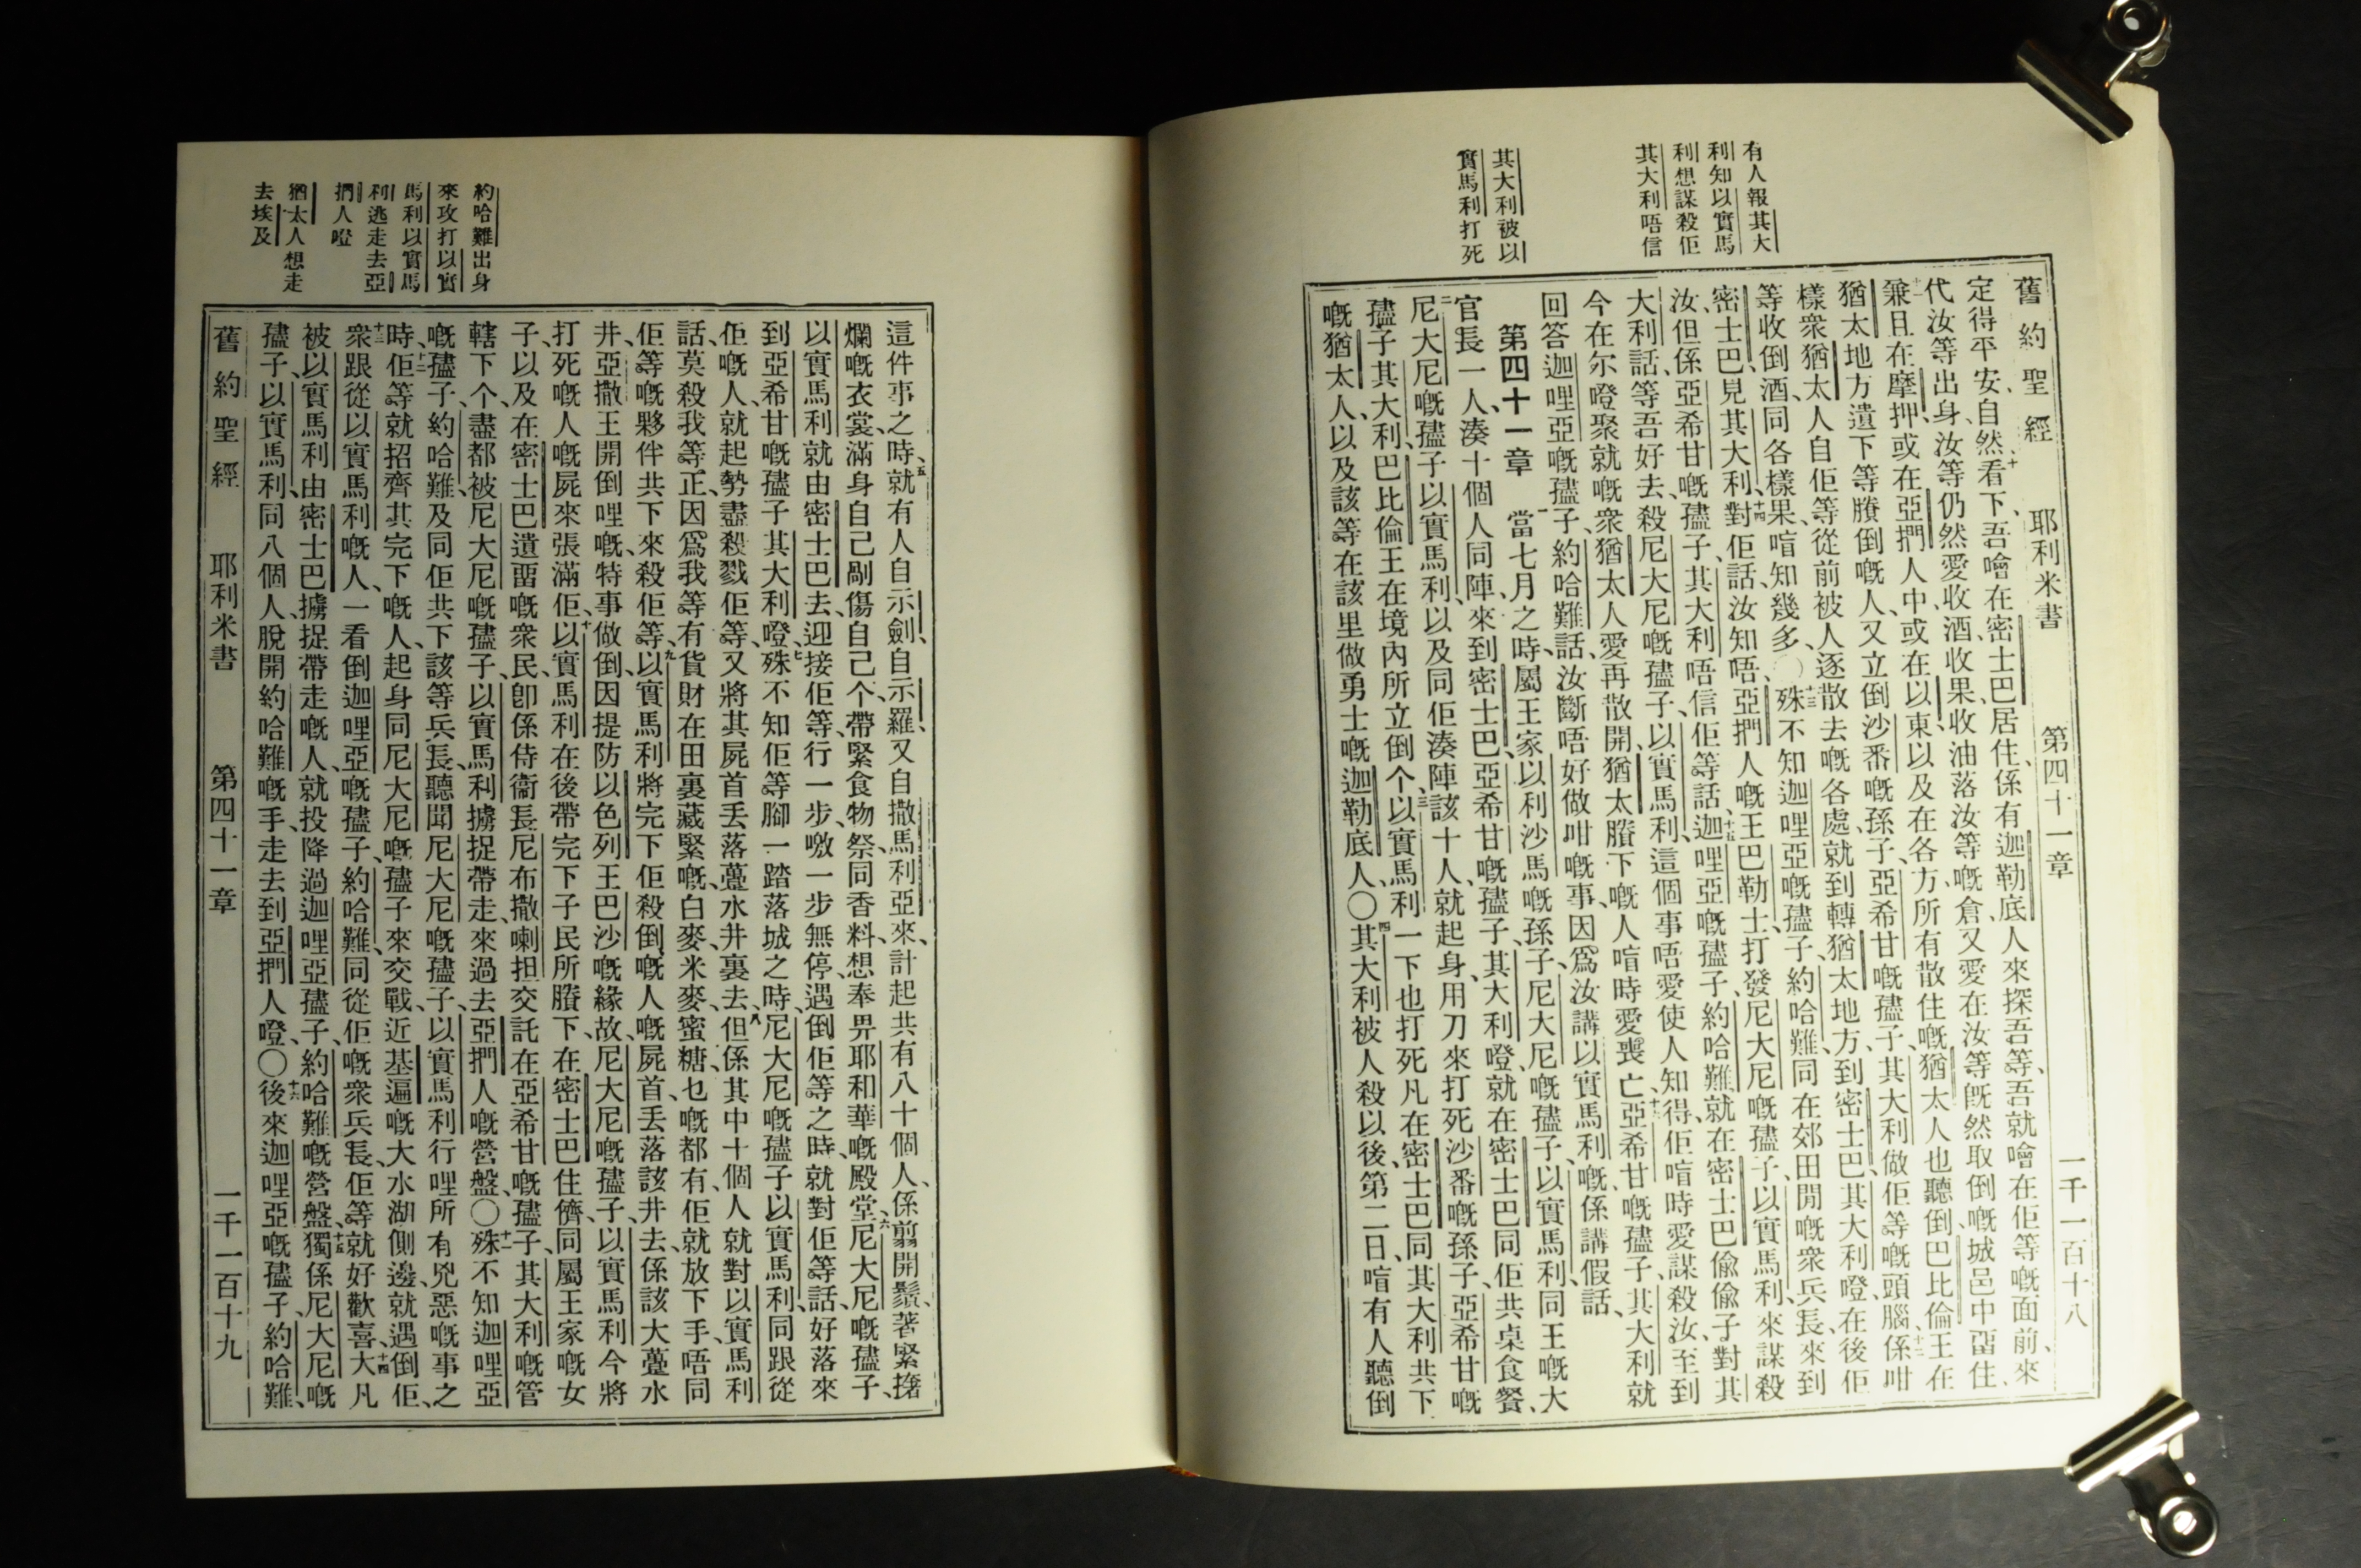 有人報其大
利知以實馬
利想謀殺佢
其大利唔信
其大利被以
實馬利打死
舊約聖經 耶利米書 第四十一章 一千一百十八
定得平安、自然、十看下、吾噲在密士巴居住、係有迦勒底人來探吾等、吾就噲在佢等嘅面前、來
代汝等出身、汝等仍然愛收酒、收果、收油、落汝等嘅倉、又愛在汝等旣然取倒嘅城邑中畱住、
十一兼且在摩押、或在亞捫人中、或在以東、以及在各方、所有散住嘅猶太人、也聽倒巴比倫王在
猶太地方遺下等賸倒嘅人、又立倒沙番嘅孫子、亞希甘嘅孻子、其大利、做佢等嘅頭腦、十二係咁
樣衆猶太人、自佢等從前被人逐散去嘅各處、就到轉猶太地方、到密士巴、其大利嶝、在後佢
等收倒酒、同各樣果、喑知幾多、〇十三殊不知迦哩亞嘅孻子、約哈難、同在郊田閒嘅衆兵長、來到
密士巴、見其大利、十四對佢話、汝知唔、亞捫人嘅王巴勒士、打發尼大尼嘅孻子、以實馬利、來謀殺
汝、但係亞希甘嘅孻子、其大利、唔信佢等話、十五迦哩亞嘅孻子、約哈難、就在密士巴、偸偸子對其
大利話、等吾好去、殺尼大尼嘅孻子、以實馬利、這個事唔愛使人知得、佢喑時愛謀殺汝、至到
今在尔嶝聚就嘅衆猶太人、愛再散開、猶太賸下嘅人、喑時愛喪亡、十六亞希甘嘅孻子、其大利、就
回答迦哩亞嘅孻子、約哈難、話、汝斷唔好做咁嘅事、因爲汝講以實馬利嘅、係講假話、
第四十一章 一當七月之時、屬王家、以利沙馬嘅孫子、尼大尼嘅孻子、以實馬利、同王嘅大
官長一人、湊十個人同陣、來到密士巴、亞希甘嘅孻子、其大利嶝、就在密士巴、同佢共桌食餐、
二尼大尼嘅孻子、以實馬利、以及同佢湊陣該十人、就起身、用刀來打死沙番嘅孫子、亞希甘嘅
孻子、其大利、巴比倫王在境內所立倒个、三以實馬利一下也打死凡在密士巴、同其大利共下
嘅猶太人、以及該等在該里做勇士嘅迦勒底人、〇四其大利被人殺以後、第二日、喑有人聽倒
約哈難出身
來攻打以實
馬利以實馬
利逃走去亞
捫人嶝
猶太人想走
去埃及
這件事之時、五就有人自示劍、自示羅、又自撒馬利亞來、計起共有八十個人、係翦開鬚、著緊撦
爛嘅衣裳、滿身自己剮傷自己个、帶緊食物祭、同香料、想奉畀耶和華嘅殿堂、六尼大尼嘅孻子、
以實馬利、就由密士巴去、迎接佢等、行一步、噭一步無停、遇倒佢等之時、就對佢等話、好落來
到亞希甘嘅孻子、其大利嶝、七殊不知佢等腳一踏落城之時、尼大尼嘅孻子、以實馬利、同跟從
佢嘅人、就起勢盡殺戮佢等、又將其屍首丢落薹水井裏去、八但係其中十個人、就對以實馬利
話、莫殺我等、正因爲我等有貨財在田裏藏緊嘅、白麥、米麥、蜜糖、乜嘅都有、佢就放下手、唔同
佢等嘅夥伴共下來殺佢等、九以實馬利將完下佢殺倒嘅人嘅屍首、丢落該井去、係該大薹水
井、亞撒王開倒哩嘅、特事做倒、因提防以色列王巴沙嘅緣故、尼大尼嘅孻子、以實馬利、今將
打死嘅人嘅屍、來張滿佢、十以實馬利在後帶完下子民、所賸下、在密士巴住儕、同屬王家嘅女
子、以及在密士巴遺畱嘅衆民、卽係侍衞長、尼布撒喇担、交託在亞希甘嘅孻子、其大利嘅管
轄下个、盡都被尼大尼嘅孻子、以實馬利、擄捉帶走、來過去亞捫人嘅營盤、〇十一殊不知迦哩亞
嘅孻子、約哈難、及同佢共下該等兵長、聽聞尼大尼嘅孻子、以實馬利、行哩所有兇惡嘅事之
時、十二佢等就招齊其完下嘅人、起身同尼大尼嘅孻子來交戰、近基遍嘅大水湖側邊、就遇倒佢、
十三衆跟從以實馬利嘅人、一看倒迦哩亞嘅孻子、約哈難、同從佢嘅衆兵長、佢等就好歡喜、十四大凡
被以實馬利由密士巴擄捉帶走嘅人、就投降過迦哩亞孻子、約哈難嘅營盤、十五獨係尼大尼嘅
孻子、以實馬利、同八個人、脫開約哈難嘅手、走去到亞捫人嶝、〇十六後來迦哩亞嘅孻子、約哈難、
舊約聖經 耶利米書 第四十一章 一千一百十九